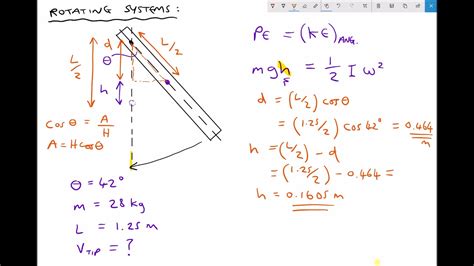 ROTATING SYSTEMS:
L/2
d
θ
h
L/2
cosθ = A/H
A = Hcosθ
θ = 42°
m = 28 kg
L = 1.25 m
V_TIP = ?
PE = (KE)_ANG.
mgh = 1/2 I ω²
F
d = (L/2) cosθ
= (1.25/2) cos 42° = 0.464 m
h = (L/2) - d
= (1.25/2) - 0.464 =
h = 0.1605 m